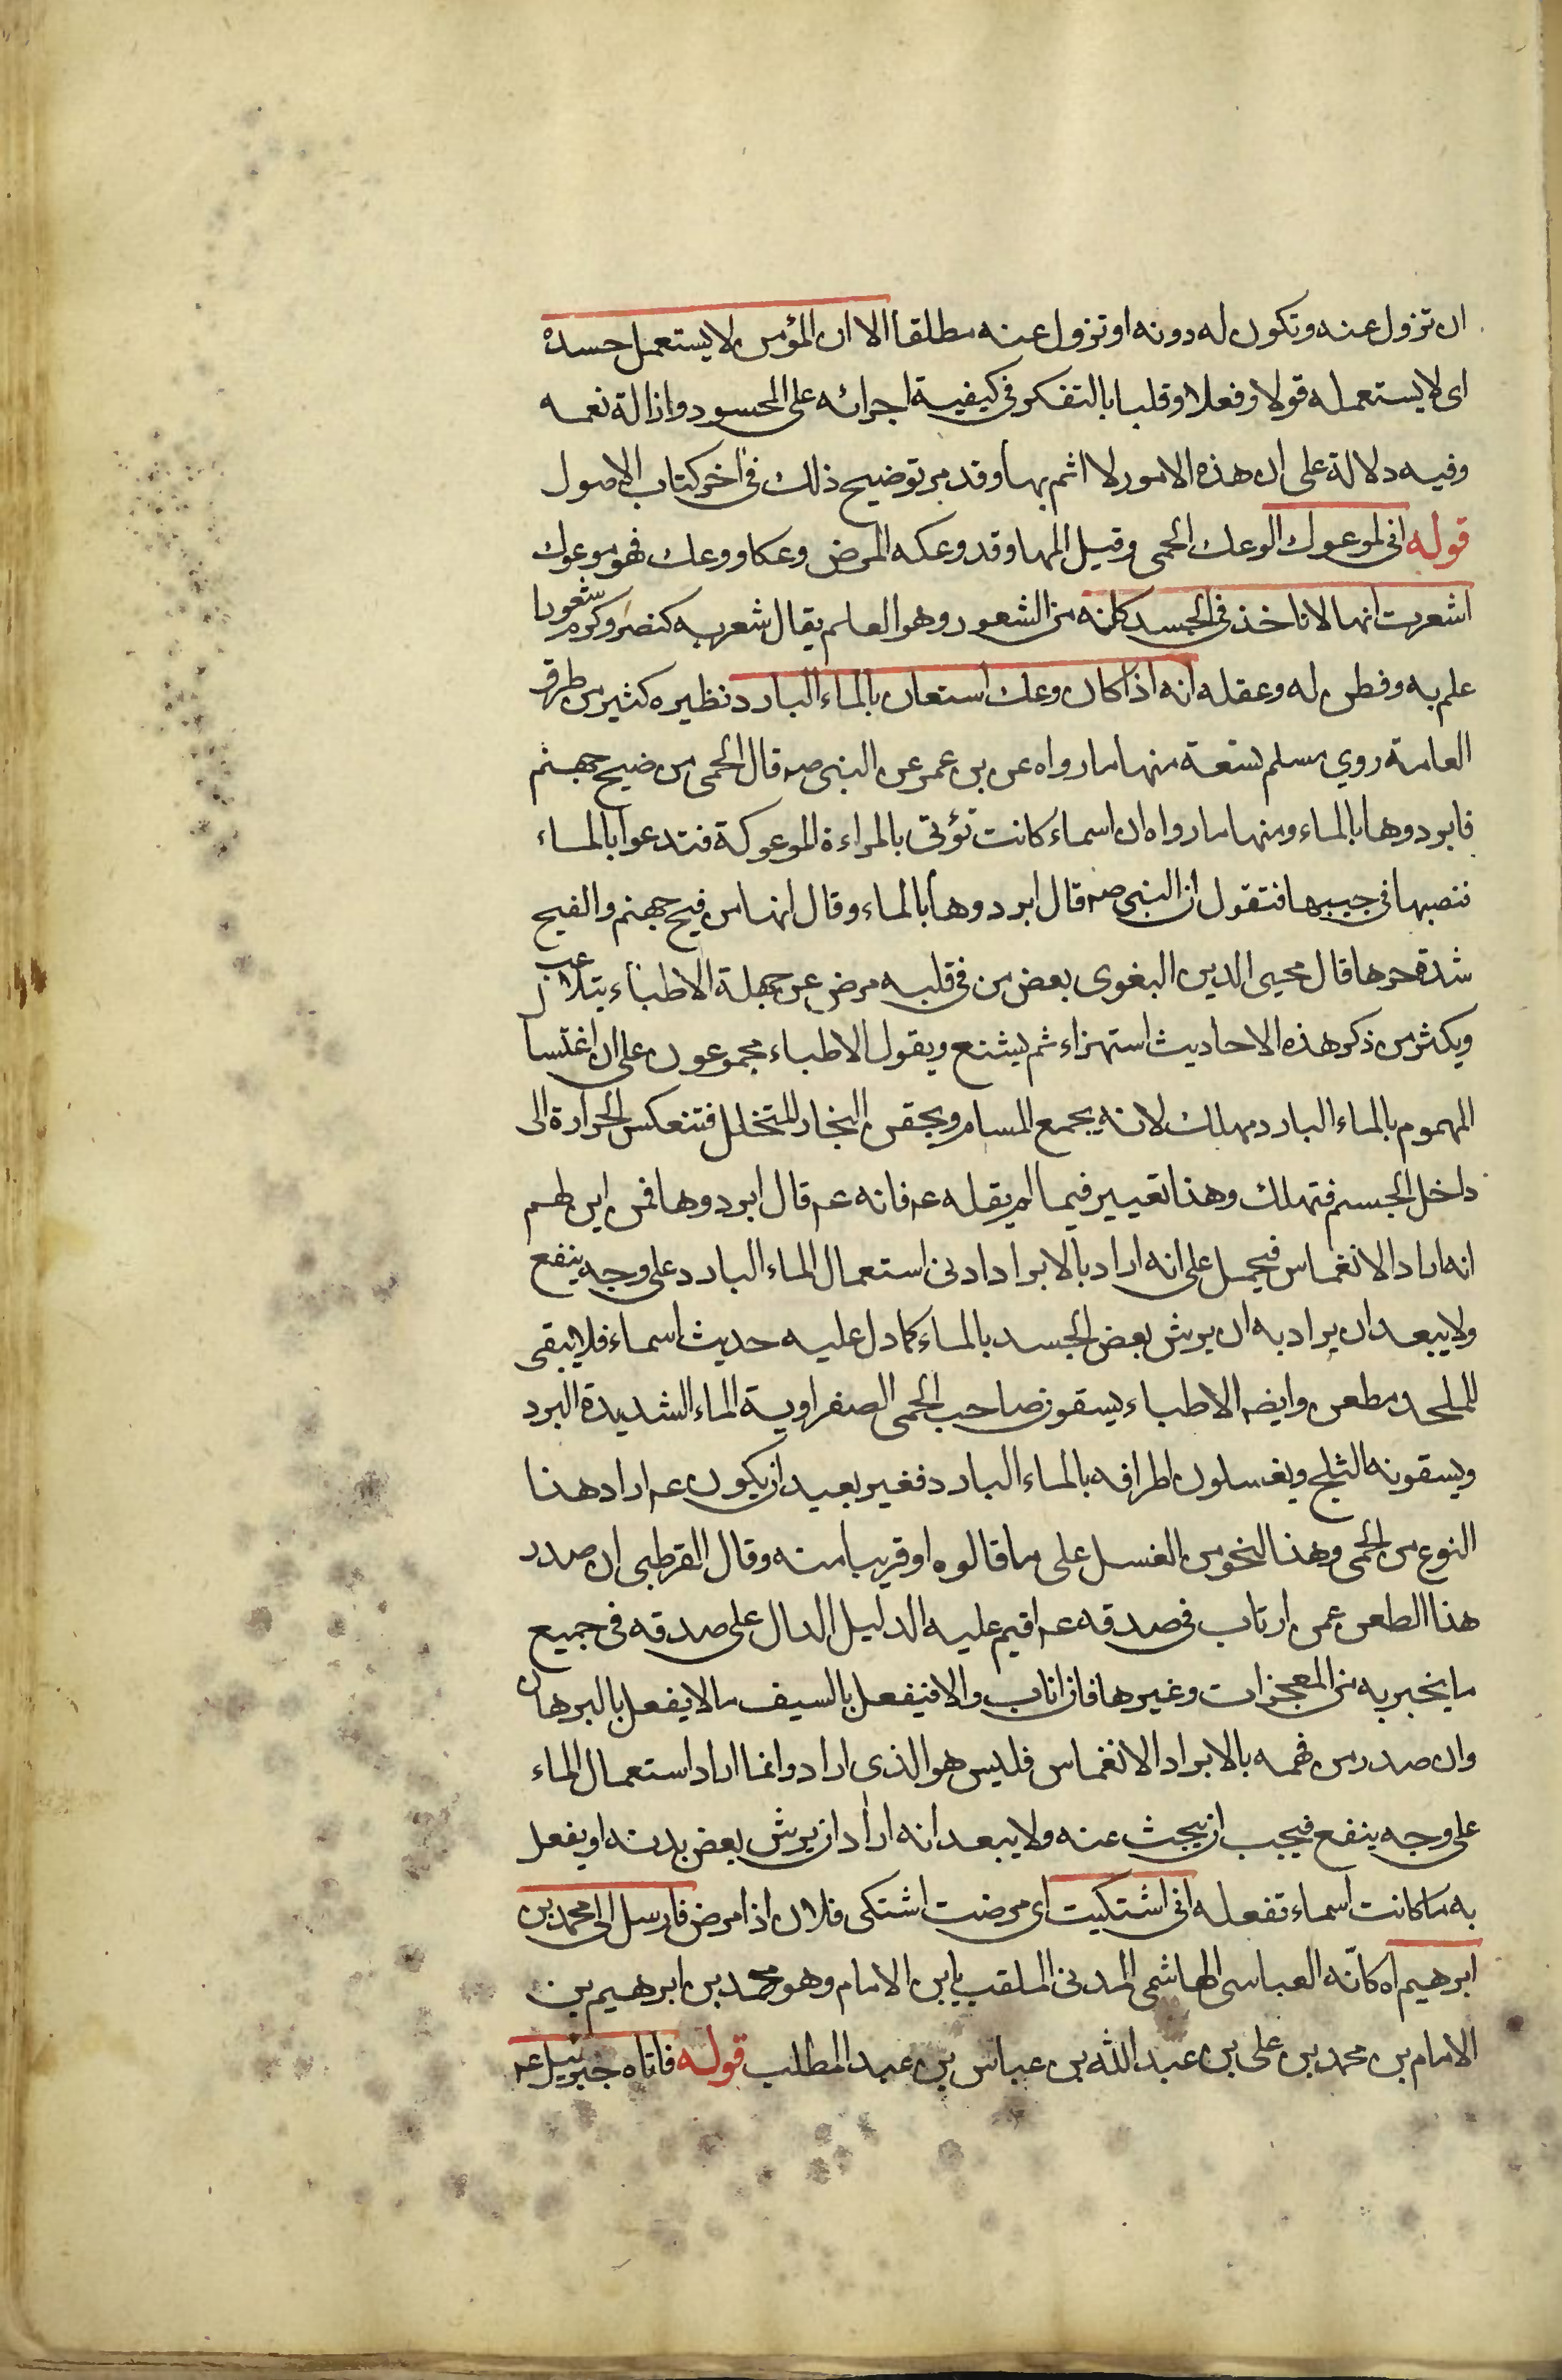 ان تزول عنه وتكون له دونه او تزول عنه مطلقا الا ان المؤمن لا يستعمل حسده
اى لا يستعمله قولا وفعلا وقلبا بالتفكر فى كيفية اجرائه على المحسود وازالة نعمه
وفيه دلالة على ان هذه الامور لا اثم بها وقد مر توضيح ذلك فى اخر كتاب الاصول
قوله انى لموعوك الوعك الحمى وقيل المها وقد وعكه المرض وعكا ووعك فهو موعوك
اشعرت انها لا تاخذ فى الجسد كله من الشعور وهو العلم يقال شعر به كنصر وكرم شعورا
علم به وفطن له وعقله انه اذا كان وعك استعان بالماء البارد نظيره كثير من طرق
العامة روي مسلم تسعة منها ما رواه عن بن عمر عن النبى صه قال الحمى من ضيح جهنم
فابردوها بالماء ومنها ما رواه ان اسماء كانت تؤتى بالمراءة الموعوكة فتدعوا بالماء
فتصبها فى جيبها فتقول ان النبى صه قال ابردوها بالماء وقال انها من فيح جهنم والفيح
شدة حرها قال محيى الدين البغوى بعض من فى قلبه مرض عن جهلة الاطباء يتلاعب
ويكثر من ذكر هذه الاحاديث استهزاء ثم يشنع ويقول الاطباء مجموعون على ان اغتسال
المهموم بالماء البارد مهلك لانه يجمع المسام ويحقن البخار المتخلل فتنعكس الحرارة الى
داخل الجسم فتهلك وهذا تعيير فيما لم يقله عه فانه عه قال ابردوها فمن اين لهم
انه اراد الانغماس فيحمل على انه اراد بالابراد ادنى استعمال الماء البارد على وجه ينفع
ولا يبعد ان يراد به ان يرش بعض الجسد بالماء كما دل عليه حديث اسماء فلا يبقى
للملحد مطعن وايضه الاطباء يسقون صاحب الحمى الصفراوية الماء الشديدة البرد
ويسقونه الثلج ويغسلون اطرافه بالماء البارد فغير بعيد ان يكون عه اراد هذا
النوع من الحمى وهذا النحو من الغسل على ما قالوه او قريبا منه وقال القرطبى ان صدر
هذا الطعن عمن ارتاب فى صدقه عه اقيم عليه الدليل الدال على صدقه فى جميع
ما يخبر به من المعجزات وغيرها فان اناب والا فيفعل بالسيف ما لا يفعل بالبرهان
وان صدر من فهمه بالابراد الانغماس فليس هو الذى اراد وانما اراد استعمال الماء
على وجه ينفع فيجب ان يبحث عنه ولا يبعد انه اراد ان يرش بعض بدنه او يفعل
به ما كانت اسماء تفعله انى اشتكيت اى مرضت اشتكى فلان اذا مرض فارسل الى محمد بن
ابرهيم اه كانّه العباسى الهاشمى المدنى الملقب بابن الامام وهو محمد بن ابرهيم بن
الامام بن محمد بن على بن عبد الله بن عباس بن عبد المطلب قوله فاتاه جبرئيل عه